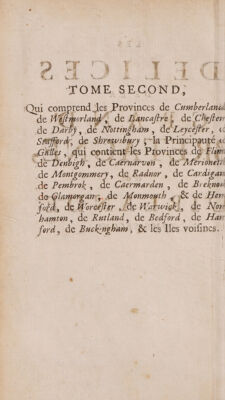 TOME SECOND,
Qui comprend les Provinces de Cumberland
de Westmorland, de Lancastre, de Chester
de Darby, de Nottingham, de Leycester,
Stafford, de Shrewsbury; la Principauté
Galles, qui contient les Provinces de Flint
de Denbigh, de Caernarvon, de Merionet
de Montgommery, de Radnor, de Cardigan
de Pembrok, de Caermarden, de Brekno
de Glamorgan, de Monmouth, & de Her
ford, de Worcester, de Warwick, de Nor
hamton, de Rutland, de Bedford, de Har
ford, de Buckingham, & les Iles voisines.